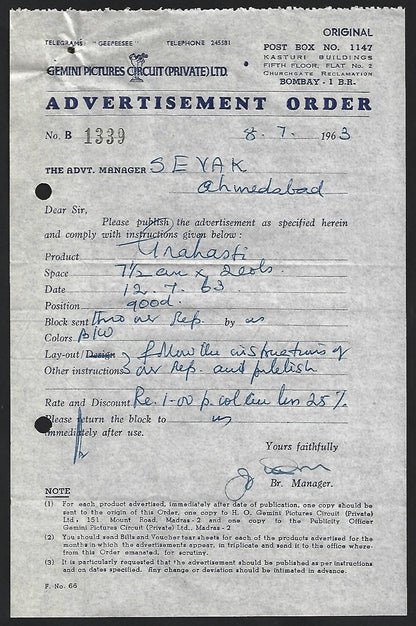 ORIGINAL
TELEGRAMS "GEEPEESEE" TELEPHONE 245581
POST BOX NO. 1147
KASTURI BUILDINGS
FIFTH FLOOR, FLAT No. 2
CHURCHGATE RECLAMATION
BOMBAY - 1 B.R.
GEMINI PICTURES CIRCUIT (PRIVATE) LTD.
ADVERTISEMENT ORDER
No. B 1339 8. 7. 1963
THE ADVT. MANAGER SEVAK
Ahmedabad
Dear Sir,
Please publish the advertisement as specified herein
and comply with instructions given below :
Product Grahasti
Space 7½ cm x 2cols.
Date 12. 7. 63
Position good.
Block sent thro our Rep. by us
Colors B/W
Lay-out/Design follow the instructions of
Other instructions our Rep. and publish
Rate and Discount Re. 1-00 p. col cm less 25%
Please return the block to us
immediately after use.
Yours faithfully
Br. Manager.
NOTE
(1) For each product advertised, immediately after date of publication, one copy should be
sent to the origin of this Order, one copy to H. O. Gemini Pictures Circuit (Private)
Ltd., 151 Mount Road, Madras - 2 and one copy to the Publicity Officer
Gemini Pictures Circuit (Private) Ltd., Madras - 2
(2) You should send Bills and Voucher tear sheets for each of the products advertised for the
months in which the advertisements appear, in triplicate and send it to the office where-
from this Order emanated, for scrutiny.
(3) It is particularly requested that the advertisement should be published as per instructions
and on dates specified. Any change or deviation should be intimated in advance.
F. No. 66